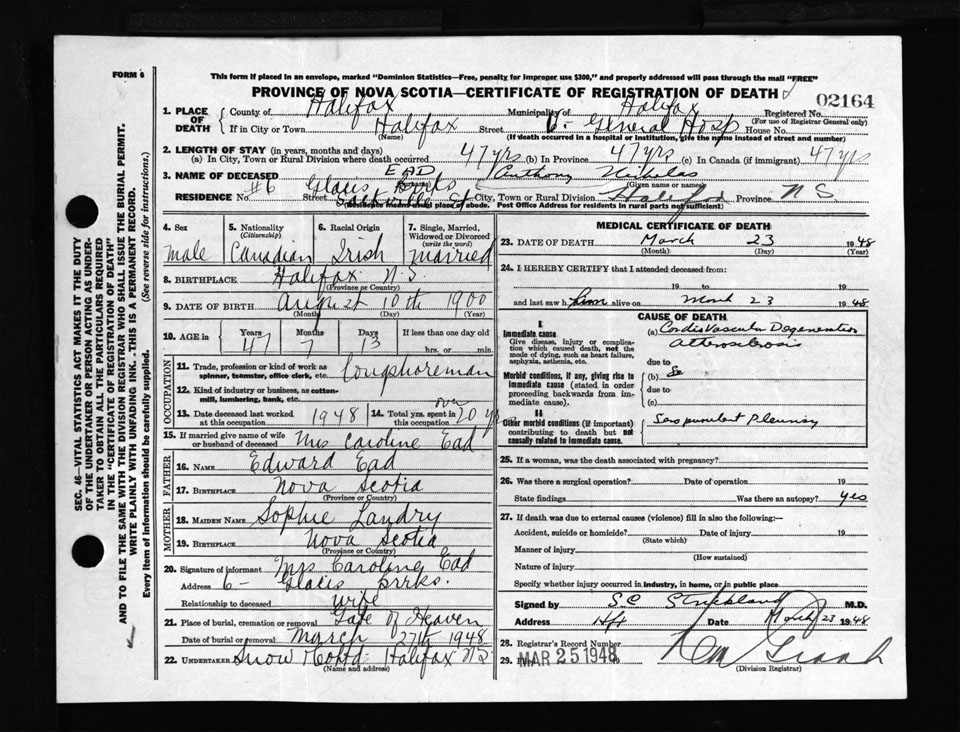 FORM 6
This form if placed in an envelope, marked "Dominion Statistics—Free, penalty for improper use $300," and properly addressed will pass through the mail "FREE"
PROVINCE OF NOVA SCOTIA—CERTIFICATE OF REGISTRATION OF DEATH
02164
1. PLACE OF DEATH County of Halifax Municipality of Halifax Registered No.
(For use of Registrar General only)
If in City or Town Halifax Street V. General Hosp House No.
(Name) (If death occurred in a hospital or institution, give the name instead of street and number)
2. LENGTH OF STAY (in years, months and days)
(a) In City, Town or Rural Division where death occurred 47 yrs (b) In Province 47 yrs (c) In Canada (if immigrant) 47 yrs
3. NAME OF DECEASED EAD Anthony Nicholas
(Given name or names)
RESIDENCE No. #6 Street Glacis Brrks Sackville St City, Town or Rural Division Halifax Province N S
(Residence means usual place of abode. Post Office Address for residents in rural parts not sufficient)
4. Sex
male
5. Nationality
(Citizenship)
Canadian
6. Racial Origin
Irish
7. Single, Married, Widowed or Divorced
(write the word)
married
8. BIRTHPLACE Halifax N.S.
(Province or Country)
9. DATE OF BIRTH August 10th 1900
(Month) (Day) (Year)
10. AGE in Years Months Days If less than one day old
47 7 13 hrs. or min.
OCCUPATION
11. Trade, profession or kind of work as spinner, teamster, office clerk, etc. Longshoreman
12. Kind of industry or business, as cotton-mill, lumbering, bank, etc.
13. Date deceased last worked at this occupation 1948
14. Total yrs. spent in this occupation over 20 yrs
15. If married give name of wife or husband of deceased Mrs Caroline Ead
FATHER
16. NAME Edward Ead
17. BIRTHPLACE Nova Scotia
(Province or Country)
MOTHER
18. MAIDEN NAME Sophie Landry
19. BIRTHPLACE Nova Scotia
(Province or Country)
20. Signature of informant Mrs Caroline Ead
Address 6- Glacis Brrks.
Relationship to deceased wife
21. Place of burial, cremation or removal Gate of Heaven
Date of burial or removal March 27th 1948
22. UNDERTAKER Snow & Co Ltd Halifax NS
(Name and address)
MEDICAL CERTIFICATE OF DEATH
23. DATE OF DEATH March 23 1948
(Month) (Day) (Year)
24. I HEREBY CERTIFY that I attended deceased from:
19 to 19
and last saw him alive on March 23 1948
CAUSE OF DEATH
I.
Immediate cause
Give disease, injury or complication which caused death, not the mode of dying, such as heart failure, asphyxia, asthenia, etc.
(a) CardioVascular Degeneration
Atherosclerosis
due to
Morbid conditions, if any, giving rise to immediate cause (stated in order proceeding backwards from immediate cause).
(b)
due to
(c)
II
Other morbid conditions (if important) contributing to death but not causally related to immediate cause.
Seropurulent Pleurisy
25. If a woman, was the death associated with pregnancy?
26. Was there a surgical operation? Date of operation 19
State findings Was there an autopsy? yes
27. If death was due to external causes (violence) fill in also the following:—
Accident, suicide or homicide? Date of injury 19
(State which)
Manner of injury
(How sustained)
Nature of injury
Specify whether injury occurred in industry, in home, or in public place
Signed by S C Strickland M.D.
Address Hfx Date March 23 1948
28. Registrar's Record Number
29. MAR 25 1948
(Division Registrar)
SEC. 46—VITAL STATISTICS ACT MAKES IT THE DUTY
OF THE UNDERTAKER OR PERSON ACTING AS UNDER-
TAKER TO OBTAIN ALL THE PARTICULARS REQUIRED
IN THE "CERTIFICATE OF REGISTRATION OF DEATH"
AND TO FILE THE SAME WITH THE DIVISION REGISTRAR WHO SHALL ISSUE THE BURIAL PERMIT.
WRITE PLAINLY WITH UNFADING INK. THIS IS A PERMANENT RECORD.
Every item of information should be carefully supplied. (See reverse side for instructions.)